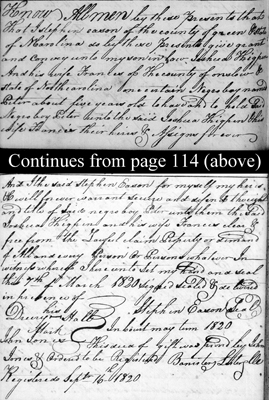 Know All men by these Presents that
that I Stephen Eason of the County of Green & State
of N Carolina do by these Presents give grant
and Convey unto my son in Law Joshua Thigpen
And his wife Frances of the county of onslow &
State of North carolina one certain Negro boy named
Peter about five years old to have and to hold said
Negro boy Peter unto the said Joshua Thigpen & his
wife Frances their heirs & Assigns forever
Continues from page 114 (above)
And I the said Stephen Eason for myself my heirs
& will forever warrant secure and defend the right
and title of said negro boy Peter unto them the said
Joshua Thigpen and his wife Frances clear &
free from the Lawful claim Property or demand
of All and every Person or Persons whatever In
witness whereof I have unto Set my hand and seal
this 7th of March 1820 Signed Sealed & delivered
in presence of
Stephen Eason Seal
Drury Hall
Mark
In Court may term 1820
John Jones
This deed of Gift was proved by John
Jones & Ordered to be Registered
Registered Sept 16th 1820